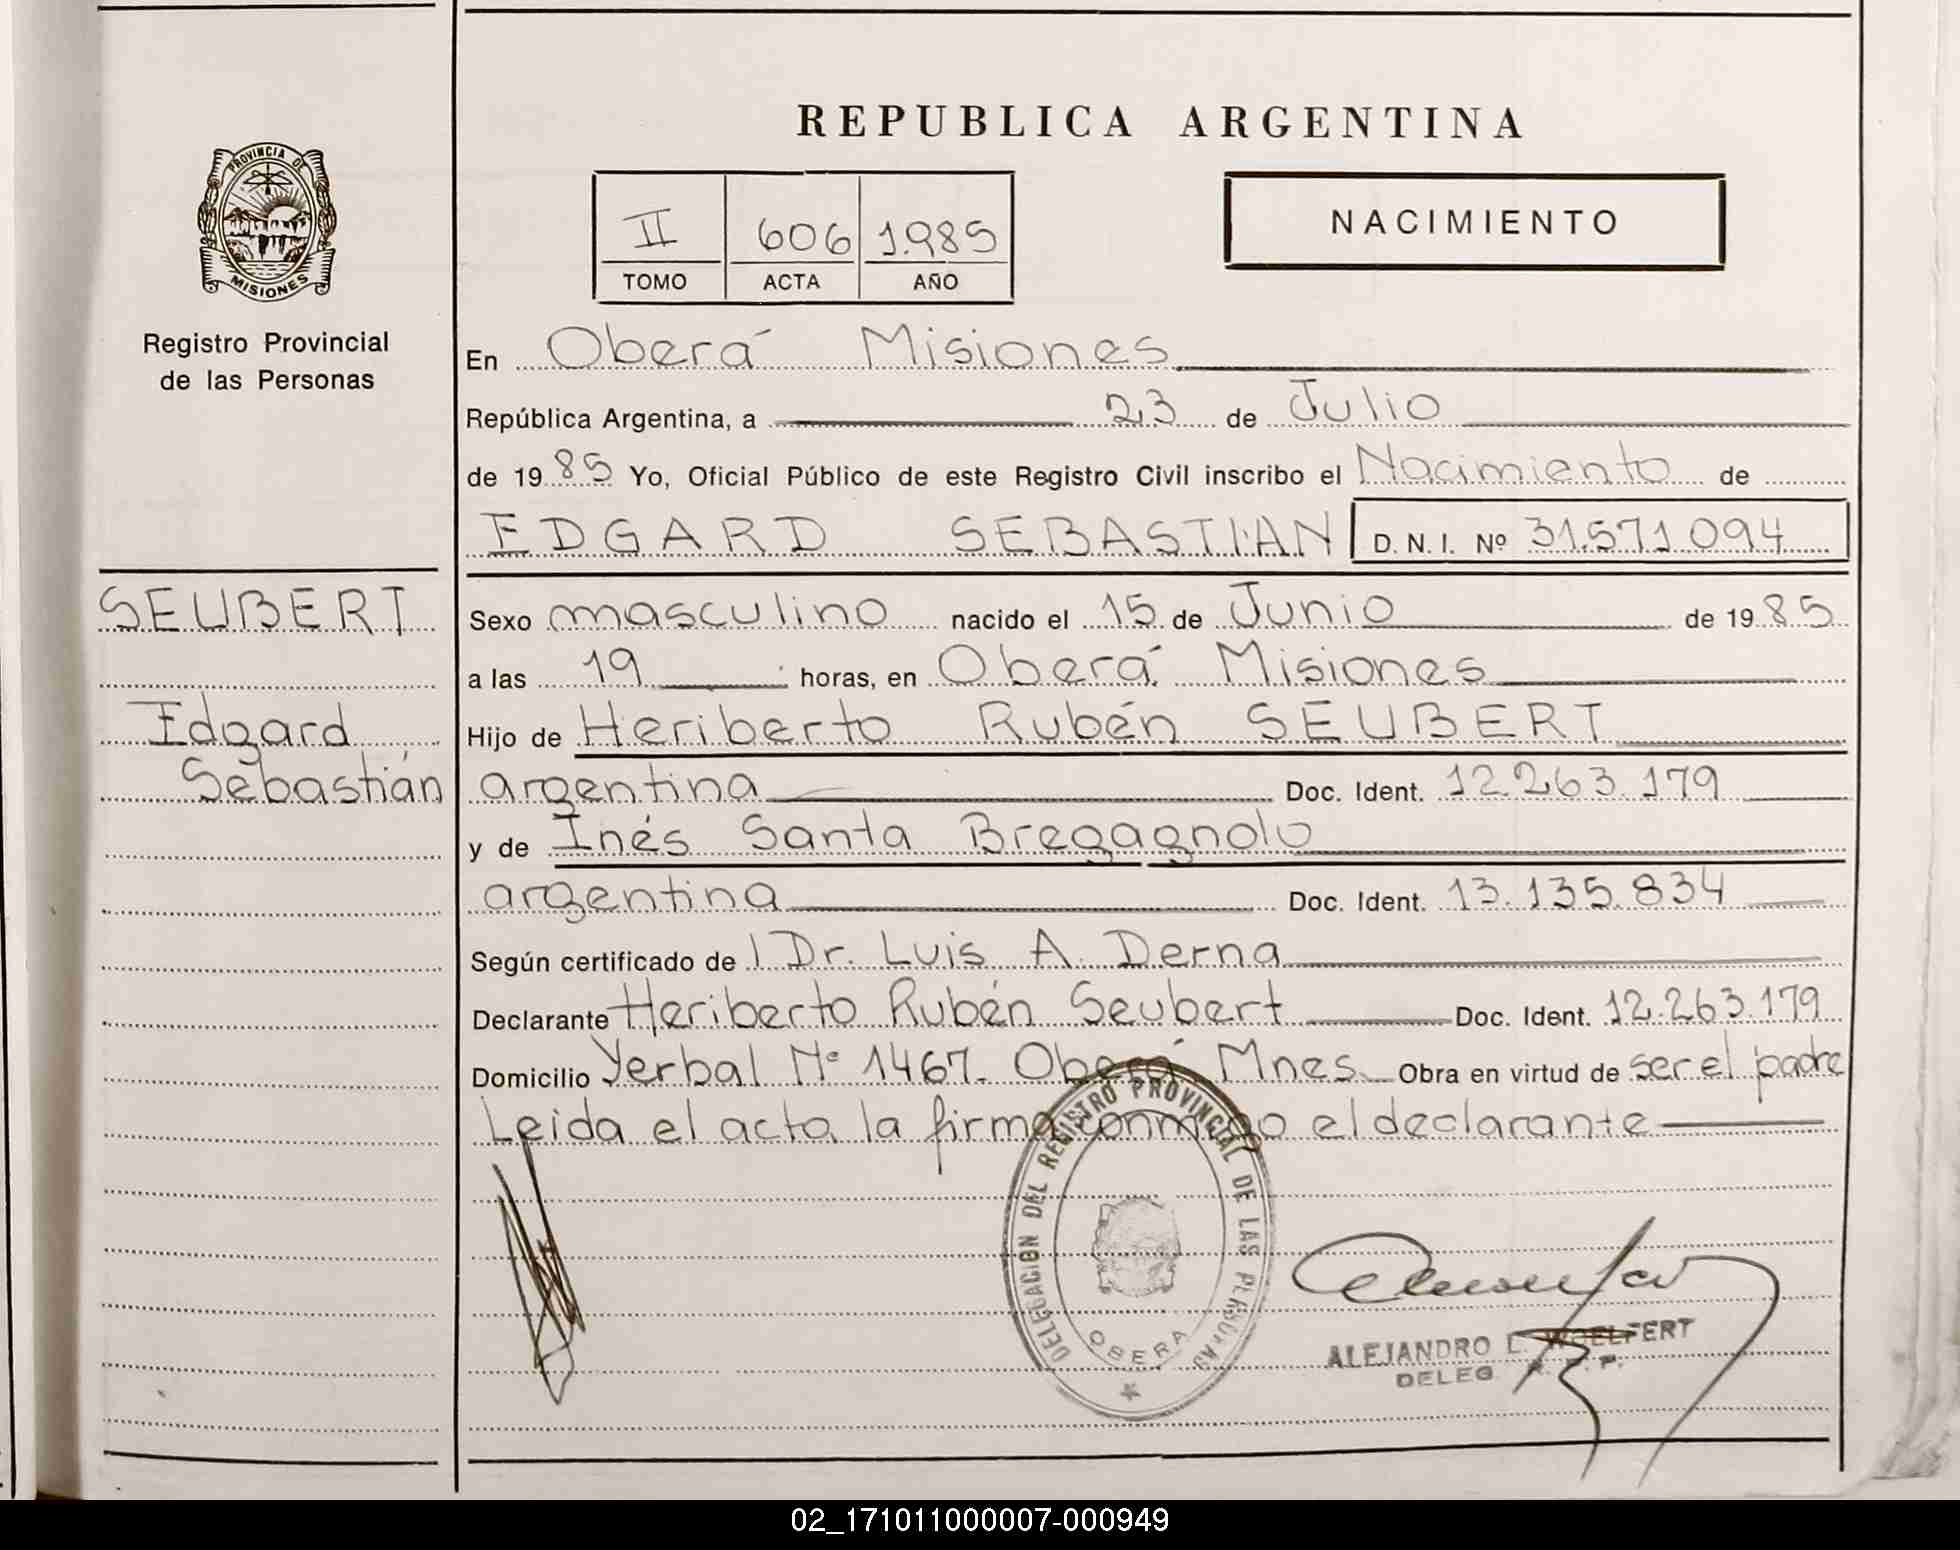 REPUBLICA ARGENTINA
PROVINCIA DE
MISIONES
Registro Provincial
de las Personas
II 606 1985
TOMO ACTA AÑO
NACIMIENTO
En Oberá Misiones
República Argentina, a 23 de Julio
de 1985 Yo, Oficial Público de este Registro Civil inscribo el Nacimiento de
EDGARD SEBASTIAN D. N. I. Nº 31.571.094
SEUBERT
Edgard
Sebastián
Sexo masculino nacido el 15 de Junio de 1985
a las 19 horas, en Oberá Misiones
Hijo de Heriberto Rubén SEUBERT
argentina Doc. Ident. 12.263.179
y de Inés Santa Bregagnolo
argentina Doc. Ident. 13.135.834
Según certificado de l Dr. Luis A. Derna
Declarante Heriberto Rubén Seubert Doc. Ident. 12.263.179
Domicilio Yerbal Nº 1467. Oberá Mnes. Obra en virtud de ser el padre
Leida el acta la firma conmigo el declarante
DELEGACION DEL REGISTRO PROVINCIAL DE LAS PERSONAS
OBERA
ALEJANDRO L. WOELFERT
DELEG. R. P. P.
02_171011000007-000949